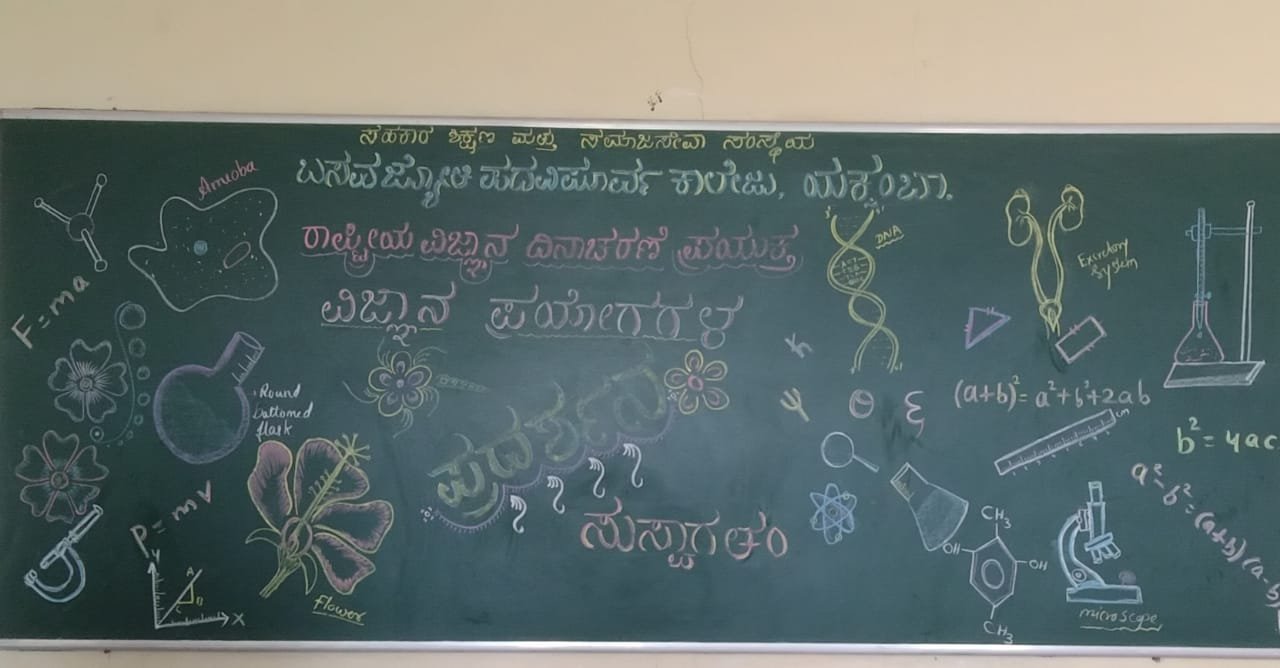 ಸಹಕಾರ ಶಿಕ್ಷಣ ಮತ್ತು ಸಮಾಜಸೇವಾ ಸಂಸ್ಥೆಯ
ಬಸವಜ್ಯೋತಿ ಪದವಿಪೂರ್ವ ಕಾಲೇಜು, ಯಕ್ಸಂಬಾ.
ರಾಷ್ಟ್ರೀಯ ವಿಜ್ಞಾನ ದಿನಾಚರಣೆ ಪ್ರಯುಕ್ತ
ವಿಜ್ಞಾನ ಪ್ರಯೋಗಗಳ
ಪ್ರದರ್ಶನ
ಸುಸ್ವಾಗತಂ
Amieoba
F=ma
Round
bottomed
flask
P=mv
Y
A
B
C
X
Flower
DNA
Excretory
System
(a+b)²= a²+b²+2ab
cm
b²=4ac
a²-b²=(a+b)(a-b)
CH₃
OH
OH
CH₃
microscope